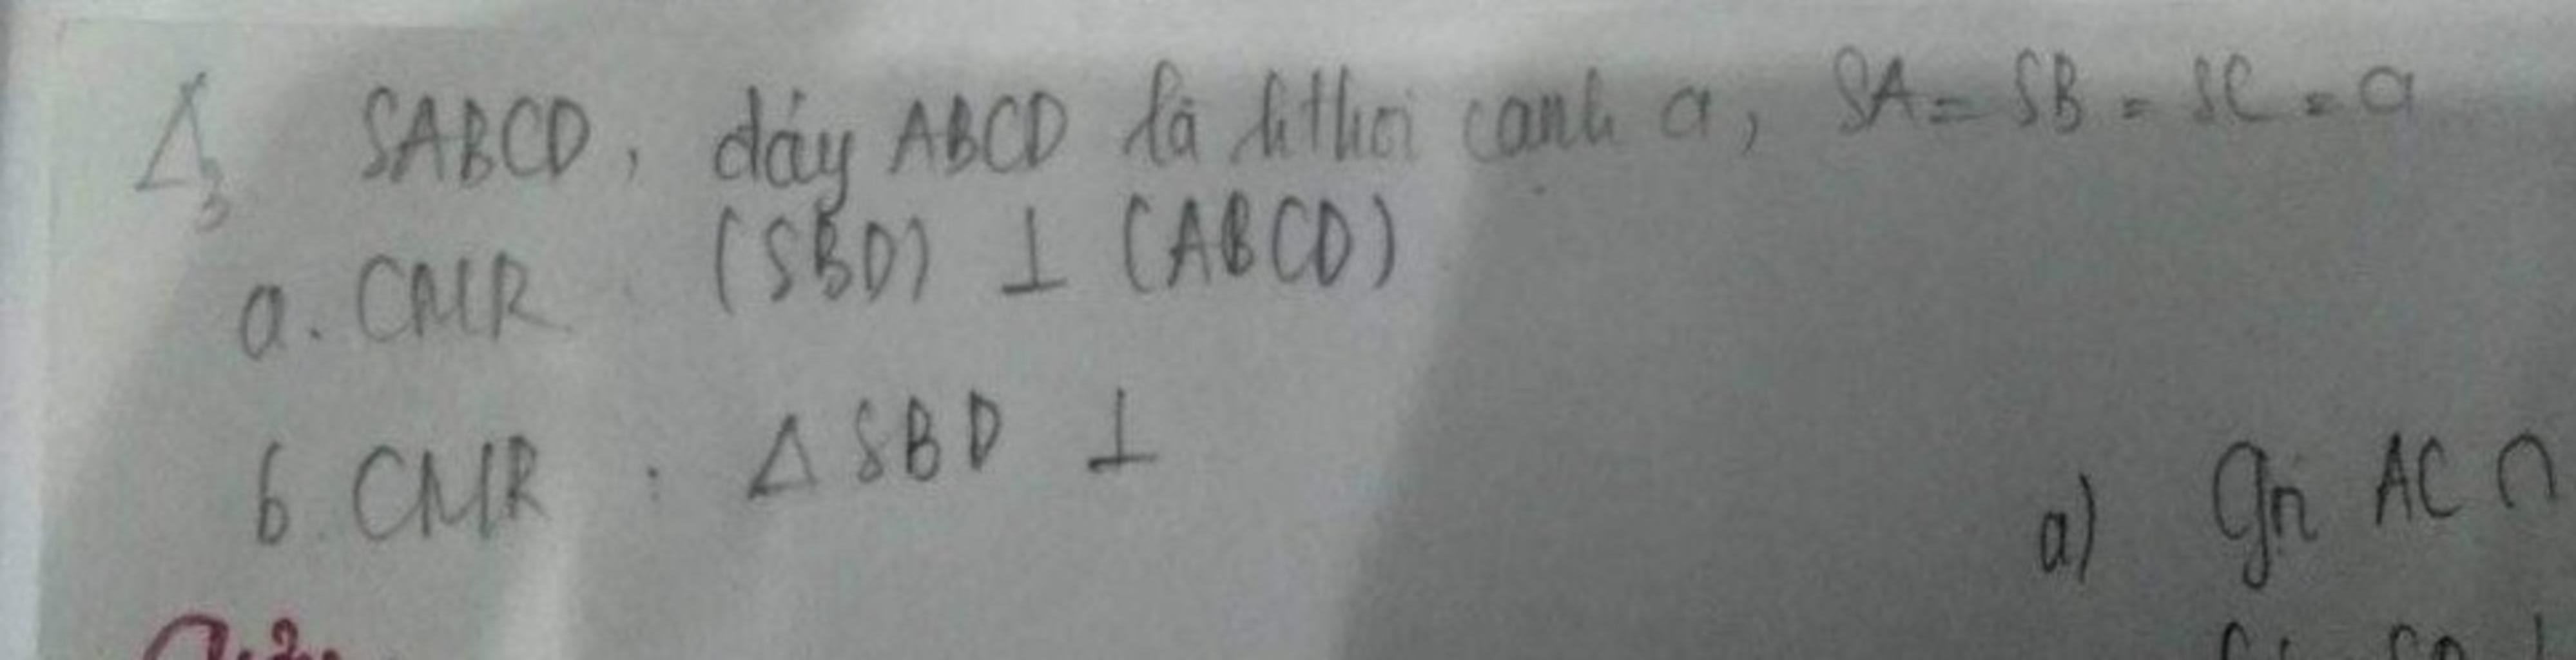 Δ3 SABCD, đáy ABCD là hthoi cạnh a, SA = SB = SC = a
a. CMR (SBD) ⊥ (ABCD)
b. CMR : Δ SBD ⊥
a) Gn AC ∩